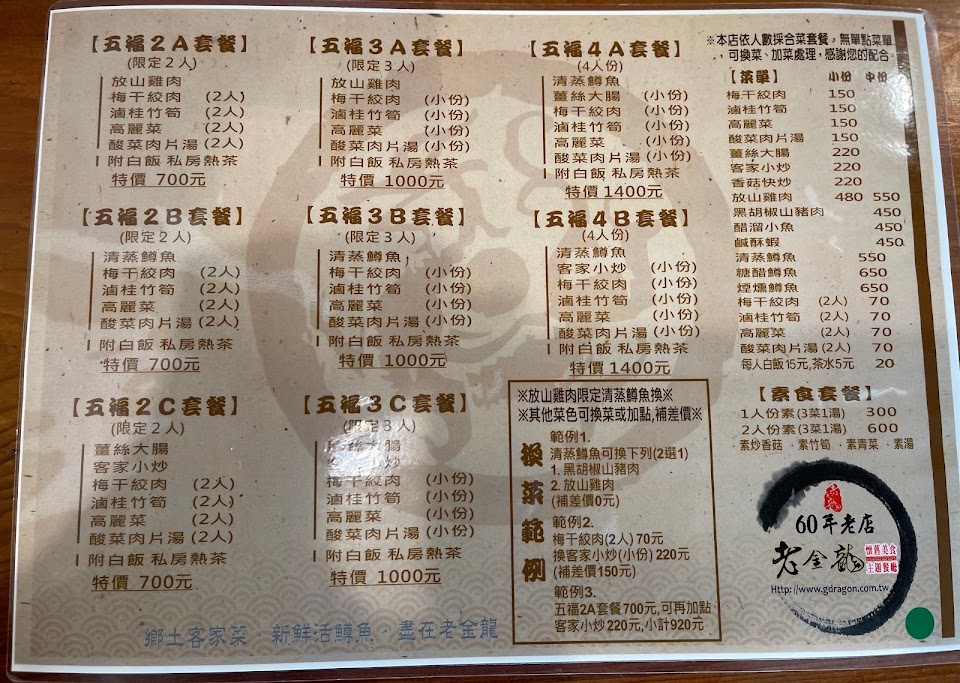 【五福2A套餐】
(限定2人)
放山雞肉
梅干絞肉 (2人)
滷桂竹筍 (2人)
高麗菜 (2人)
酸菜肉片湯 (2人)
附白飯 私房熱茶
特價 700元
【五福3A套餐】
(限定3人)
放山雞肉
梅干絞肉 (小份)
滷桂竹筍 (小份)
高麗菜 (小份)
酸菜肉片湯 (小份)
附白飯 私房熱茶
特價 1000元
【五福4A套餐】
(4人份)
清蒸鱒魚
薑絲大腸 (小份)
梅干絞肉 (小份)
滷桂竹筍 (小份)
高麗菜 (小份)
酸菜肉片湯 (小份)
附白飯 私房熱茶
特價1400元
【五福2B套餐】
(限定2人)
清蒸鱒魚
梅干絞肉 (2人)
滷桂竹筍 (2人)
高麗菜 (2人)
酸菜肉片湯 (2人)
附白飯 私房熱茶
特價 700元
【五福3B套餐】
(限定3人)
清蒸鱒魚
梅干絞肉 (小份)
滷桂竹筍 (小份)
高麗菜 (小份)
酸菜肉片湯 (小份)
附白飯 私房熱茶
特價 1000元
【五福4B套餐】
(4人份)
清蒸鱒魚
客家小炒 (小份)
梅干絞肉 (小份)
滷桂竹筍 (小份)
高麗菜 (小份)
酸菜肉片湯 (小份)
附白飯 私房熱茶
特價1400元
【五福2C套餐】
(限定2人)
薑絲大腸
客家小炒
梅干絞肉 (2人)
滷桂竹筍 (2人)
高麗菜 (2人)
酸菜肉片湯 (2人)
附白飯 私房熱茶
特價 700元
【五福3C套餐】
(限定3人)
絲大腸
客家小炒
梅干絞肉 (小份)
滷桂竹筍 (小份)
高麗菜 (小份)
酸菜肉片湯 (小份)
附白飯 私房熱茶
特價 1000元
※放山雞肉限定清蒸鱒魚換※
※其他菜色可換菜或加點,補差價※
換菜範例
範例1.
清蒸鱒魚可換下列(2選1)
1. 黑胡椒山豬肉
2. 放山雞肉
(補差價0元)
範例2.
梅干絞肉(2人) 70元
換客家小炒(小份) 220元
(補差價150元)
範例3.
五福2A套餐700元,可再加點
客家小炒220元,小計920元
※本店依人數採合菜套餐，無單點菜單
，可換菜、加菜處理，感謝您的配合。
【菜單】 小份 中份
梅干絞肉 150
滷桂竹筍 150
高麗菜 150
酸菜肉片湯 150
薑絲大腸 220
客家小炒 220
香菇快炒 220
放山雞肉 480 550
黑胡椒山豬肉 450
醋溜小魚 450
鹹酥蝦 450
清蒸鱒魚 550
糖醋鱒魚 650
煙燻鱒魚 650
梅干絞肉 (2人) 70
滷桂竹筍 (2人) 70
高麗菜 (2人) 70
酸菜肉片湯 (2人) 70
每人白飯15元,茶水5元 20
【素食套餐】
1人份素(3菜1湯) 300
2人份素(3菜1湯) 600
素炒香菇 · 素竹筍 · 素青菜 · 素湯
60年老店
老金龍
懷舊美食
主題餐廳
Http://www.gdragon.com.tw
鄉土客家菜 · 新鮮活鱒魚 · 盡在老金龍